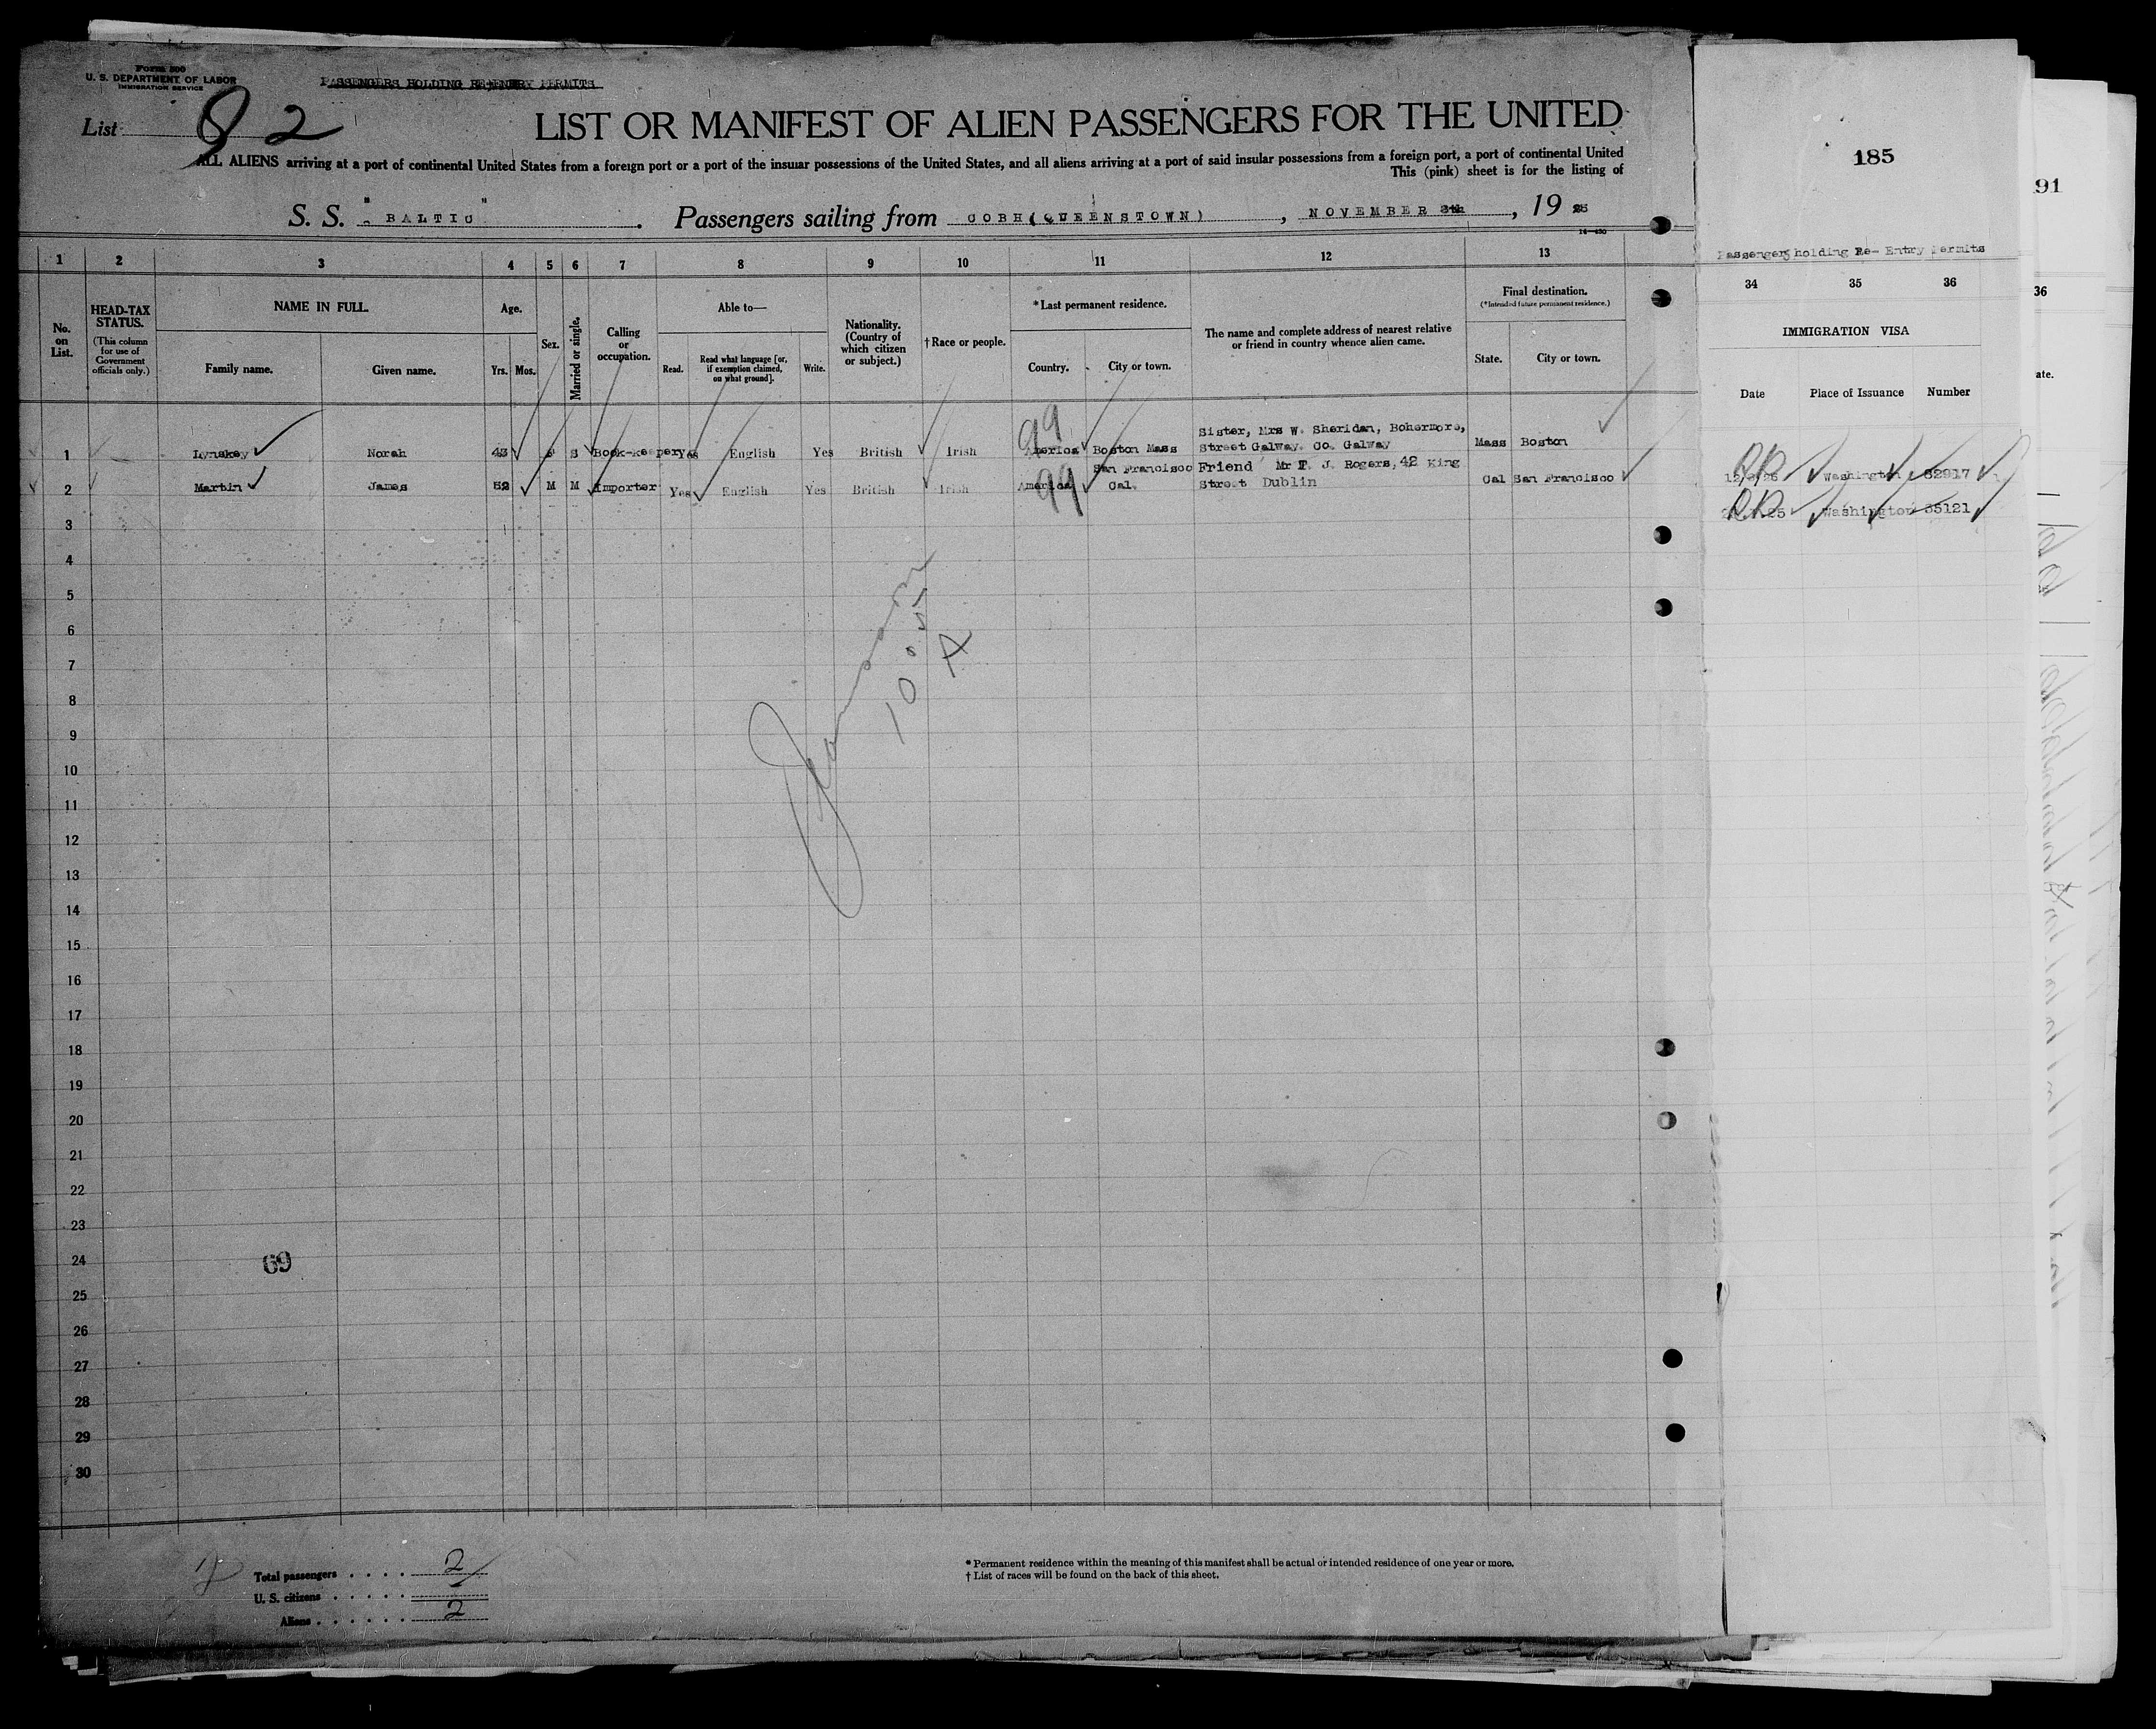 Form 500
U. S. DEPARTMENT OF LABOR
IMMIGRATION SERVICE
PASSENGERS HOLDING RE-ENTRY PERMITS
List 82
LIST OR MANIFEST OF ALIEN PASSENGERS FOR THE UNITED
ALL ALIENS arriving at a port of continental United States from a foreign port or a port of the insular possessions of the United States, and all aliens arriving at a port of said insular possessions from a foreign port, a port of continental United
This (pink) sheet is for the listing of
S. S. "BALTIC" Passengers sailing from COBH (QUEENSTOWN), NOVEMBER 8th, 1925
185
91
Passengers holding Re- Entry Permits
1 2 3 4 5 6 7 8 9 10 11 12 13
34 35 36
36
No. on List.
HEAD-TAX STATUS.
(This column for use of Government officials only.)
NAME IN FULL.
Family name.
Given name.
Age.
Yrs. Mos.
Sex.
Married or single.
Calling or occupation.
Able to—
Read.
Read what language [or, if exemption claimed, on what ground].
Write.
Nationality. (Country of which citizen or subject.)
†Race or people.
*Last permanent residence.
Country.
City or town.
The name and complete address of nearest relative or friend in country whence alien came.
Final destination.
(*Intended future permanent residence.)
State.
City or town.
IMMIGRATION VISA
Date
Place of Issuance
Number
ate.
1 Lynskey Norah 43 F S Book-keeper Yes English Yes British Irish America Boston Mass Sister, Mrs W. Sheridan, Bohermore, Street Galway. Co. Galway Mass Boston
99
Washington 82917
2 Martin James 52 M M Importer Yes English Yes British Irish America San Francisco Cal. Friend Mr T. J. Rogers, 42 King Street Dublin Cal San Francisco
99
Washington 35121
3
4
5
6
7
8
9
10
11
12
13
14
15
16
17
18
19
20
21
22
23
24
25
26
27
28
29
30
10.05
A
69
Total passengers 2
U. S. citizens
Aliens 2
* Permanent residence within the meaning of this manifest shall be actual or intended residence of one year or more.
† List of races will be found on the back of this sheet.